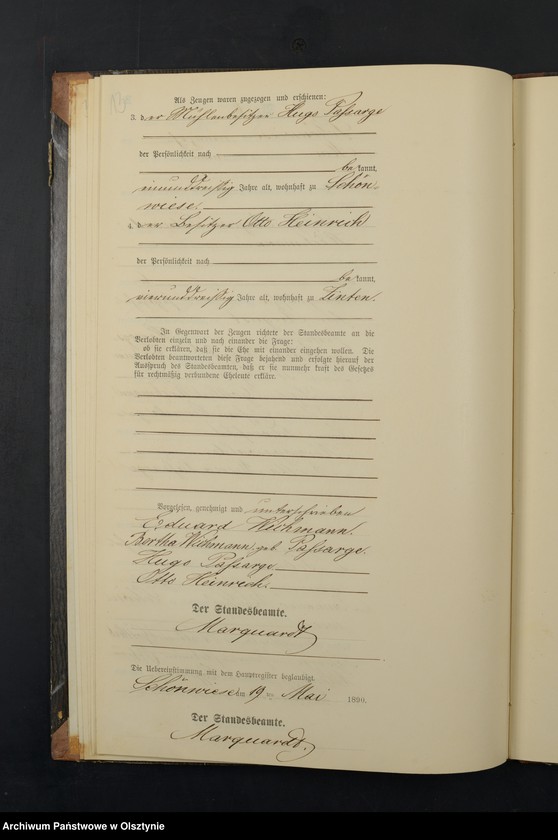 Als Zeugen waren zugezogen und erschienen:
3. der Mühlenbesitzer Hugo Paßarge
der Persönlichkeit nach
bekannt,
einunddreißig Jahre alt, wohnhaft zu Schön-
wiese
4. der Besitzer Otto Heinrich
der Persönlichkeit nach
bekannt,
vierunddreißig Jahre alt, wohnhaft zu Zinten.
In Gegenwart der Zeugen richtete der Standesbeamte an die
Verlobten einzeln und nach einander die Frage:
ob sie erklären, daß sie die Ehe mit einander eingehen wollen. Die
Verlobten beantworteten diese Frage bejahend und erfolgte hierauf der
Ausspruch des Standesbeamten, daß er sie nunmehr kraft des Gesetzes
für rechtmäßig verbundene Eheleute erkläre.
Vorgelesen, genehmigt und unterschrieben
Eduard Wichmann.
Bertha Wichmann geb. Paßarge.
Hugo Paßarge
Otto Heinrich.
Der Standesbeamte.
Marquardt
Die Uebereinstimmung mit dem Hauptregister beglaubigt.
Schönwiese am 19 ten Mai 1890.
Der Standesbeamte.
Marquardt.
Archiwum Państwowe w Olsztynie